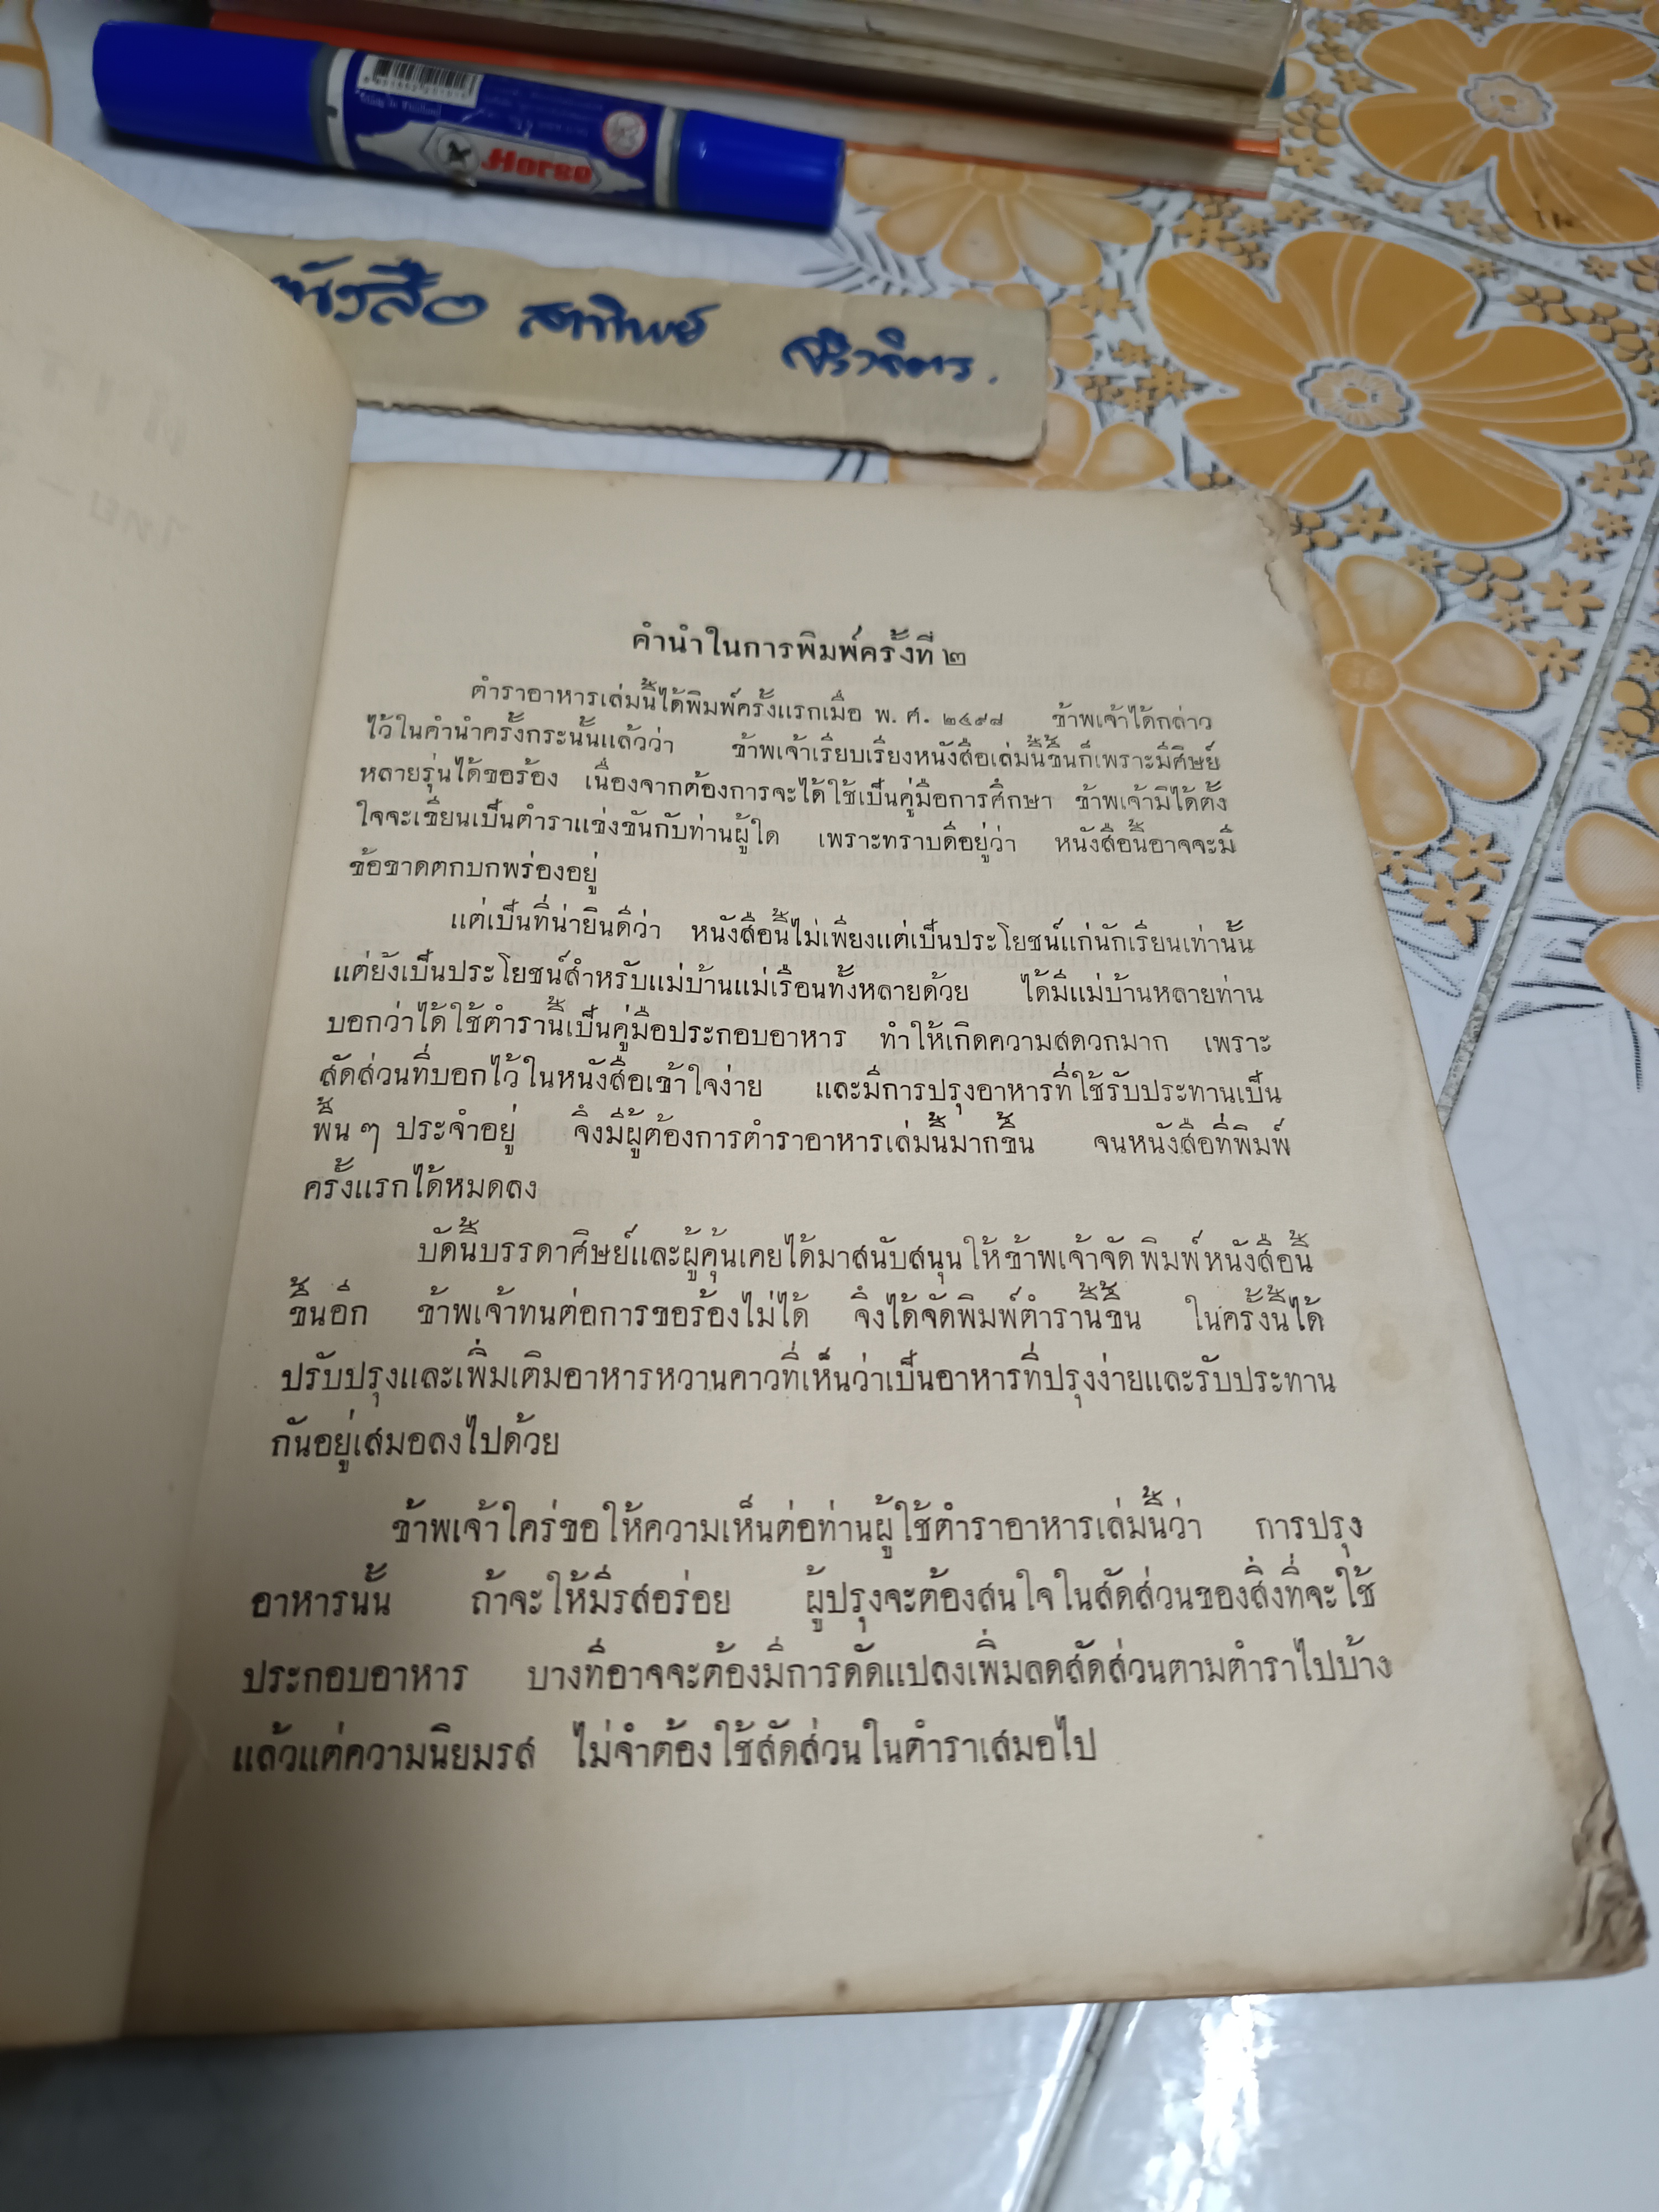 Horse
หนังสือ
คำนำในการพิมพ์ครั้งที่ ๒
ตำราอาหารเล่มนี้ได้พิมพ์ครั้งแรกเมื่อ พ. ศ. ๒๔๙๘ ข้าพเจ้าได้กล่าว
ไว้ในคำนำครั้งกระนั้นแล้วว่า ข้าพเจ้าเรียบเรียงหนังสือเล่มนี้ขึ้นก็เพราะมีศิษย์
หลายรุ่นได้ขอร้อง เนื่องจากต้องการจะได้ใช้เป็นคู่มือการศึกษา ข้าพเจ้ามิได้ตั้ง
ใจจะเขียนเป็นตำราแข่งขันกับท่านผู้ใด เพราะทราบดีอยู่ว่า หนังสือนี้อาจจะมี
ข้อขาดตกบกพร่องอยู่
แต่เป็นที่น่ายินดีว่า หนังสือนี้ไม่เพียงแต่เป็นประโยชน์แก่นักเรียนเท่านั้น
แต่ยังเป็นประโยชน์สำหรับแม่บ้านแม่เรือนทั้งหลายด้วย ได้มีแม่บ้านหลายท่าน
บอกว่าได้ใช้ตำรานี้เป็นคู่มือประกอบอาหาร ทำให้เกิดความสดวกมาก เพราะ
สัดส่วนที่บอกไว้ในหนังสือเข้าใจง่าย และมีการปรุงอาหารที่ใช้รับประทานเป็น
พื้น ๆ ประจำอยู่ จึงมีผู้ต้องการตำราอาหารเล่มนี้มากขึ้น จนหนังสือที่พิมพ์
ครั้งแรกได้หมดลง
บัดนี้บรรดาศิษย์และผู้คุ้นเคยได้มาสนับสนุนให้ข้าพเจ้าจัดพิมพ์หนังสือนี้
ขึ้นอีก ข้าพเจ้าทนต่อการขอร้องไม่ได้ จึงได้จัดพิมพ์ตำรานี้ขึ้น ในครั้งนี้ได้
ปรับปรุงและเพิ่มเติมอาหารหวานคาวที่เห็นว่าเป็นอาหารที่ปรุงง่ายและรับประทาน
กันอยู่เสมอลงไปด้วย
ข้าพเจ้าใคร่ขอให้ความเห็นต่อท่านผู้ใช้ตำราอาหารเล่มนี้ว่า การปรุง
อาหารนั้น ถ้าจะให้มีรสอร่อย ผู้ปรุงจะต้องสนใจในสัดส่วนของสิ่งที่จะใช้
ประกอบอาหาร บางทีอาจจะต้องมีการดัดแปลงเพิ่มลดสัดส่วนตามตำราไปบ้าง
แล้วแต่ความนิยมรส ไม่จำต้องใช้สัดส่วนในตำราเสมอไป